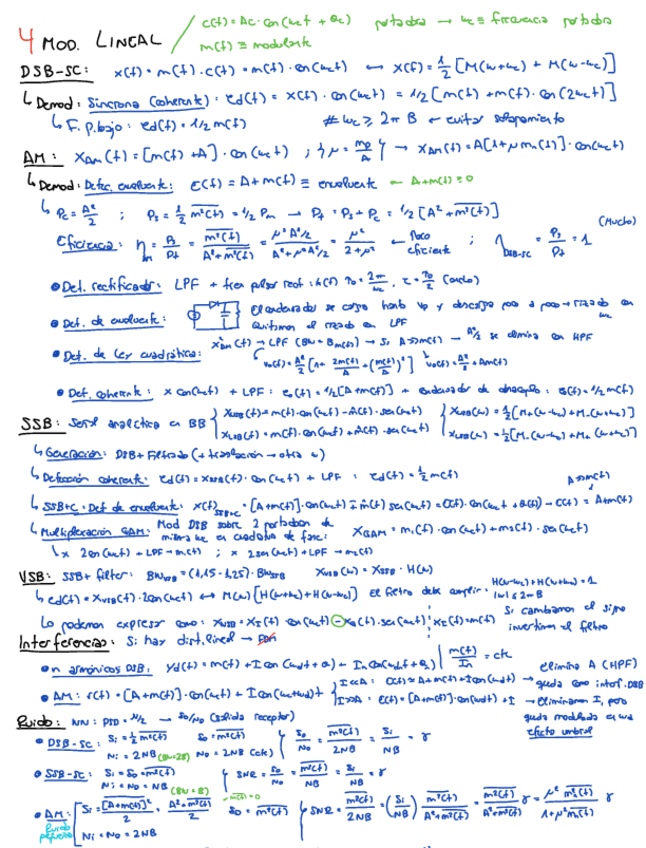 4 MOD. LINEAL / c(t) = Ac · cos(ωc t + θc) portadora → ωc ≡ frecuencia portadora
m(t) ≡ modulante
DSB-SC: x(t) = m(t) · c(t) = m(t) · cos(ωct) ↔ X(f) = 1/2 [M(ω+ωc) + M(ω-ωc)]
↳ Demod: Síncrona (coherente): ed(t) = x(t) · cos(ωct) = 1/2 [m(t) + m(t) · cos(2ωct)]
↳ F. p. bajo: ed(t) = 1/2 m(t) # ωc ≥ 2π B ← evitar solapamiento
AM: xAM(t) = [m(t) + A] · cos(ωct) ; μ = mp/A → xAM(t) = A[1+μ mn(t)] · cos(ωct)
↳ Demod: Detec. envolvente: E(t) = A + m(t) ≡ envolvente ← A+m(t) ≥ 0
↳ Pc = A²/2 ; Ps = 1/2 m²(t) = 1/2 Pm → Pt = Ps + Pc = 1/2 [A² + m²(t)]
Eficiencia: η = Ps/Pt = m²(t)/(A²+m²(t)) = (μ²A²/2)/(A²+μ²A²/2) = μ²/(2+μ²) ← Poco eficiente ; ηDSB-SC = Ps/Pt = 1 (Mucho)
• Det. rectificador: LPF + tren pulsos rect: k(t) T0 = 2π/ωc, τ = T0/2 (ancho)
• Det. de envolvente: El condensador se carga hasta Vp y descarga poco a poco → rizado en ωc
Quitamos el rizado en LPF
• Det. de Ley cuadrática: x²AM(t) → LPF (BW = Bm(t)) → Si A≫m(t) → A²/2 se elimina con HPF
vo(t) = A²/2 [1 + 2m(t)/A + (m(t)/A)²] vo(t) = A²/2 + Am(t)
• Det. coherente: x cos(ωct) + LPF: eo(t) = 1/2[A+m(t)] + condensador de desacoplo: eo(t) = 1/2 m(t)
SSB: Señal analítica en BB { xUSB(t) = m(t) · cos(ωct) - m̂(t) · sen(ωct) { XUSB(ω) = 1/2[M+(ω-ωc) + M-(ω+ωc)]
xLSB(t) = m(t) · cos(ωct) + m̂(t) · sen(ωct) XLSB(ω) = 1/2[M-(ω-ωc) + M+(ω+ωc)]
↳ Generación: DSB + Filtrado (+ traslación → otra ω)
↳ Detección coherente: ed(t) = xSSB(t) · cos(ωct) + LPF : ed(t) = 1/2 m(t)
↳ SSB+C: Det de envolvente: x(t)SSB+C = [A+m(t)] · cos(ωct) ∓ m̂(t) sen(ωct) = E(t) · cos(ωct + θ(t)) → E(t) = A+m(t) A≫m(t)
↳ Multiplexación QAM: Mod DSB sobre 2 portadoras de
misma ωc en cuadratura de fase: xQAM = m1(t) · cos(ωct) + m2(t) · sen(ωct)
↳ x 2cos(ωct) + LPF → m1(t) ; x 2sen(ωct) + LPF → m2(t)
VSB: SSB + filter: BWVSB = (1,15 - 1,25) · BWSSB XVSB(ω) = XDSB · H(ω)
↳ ed(t) = xVSB(t) · 2cos(ωct) ↔ M(ω) [H(ω+ωc) + H(ω-ωc)] El filtro debe cumplir: H(ω-ωc) + H(ω+ωc) = 1
|ω| ≤ 2πB
Lo podemos expresar como: xUSB = xI(t) · cos(ωct) - xQ(t) · sen(ωct) ¦ xI(t) = m(t) Si cambiamos el signo
invertimos el filtro
Interferencias: Si hay dist. lineal →
• n armónicos DSB: yd(t) = m(t) + I cos(ωdt + θ) + In cos(ωdt + θn) | m(t)/In = cte
• AM: r(t) = [A+m(t)] · cos(ωct) + I cos(ωc+ωd)t { I≪A: E(t) ≈ A+m(t) + I cos(ωdt) → elimina A (HPF) queda como interf. DSB
I≫A: E(t) = [A+m(t)] · cos(ωdt) + I → Eliminamos I, pero
queda modulada en ωd
efecto umbral
Ruido: NN: PSD = N/2 → So/No (salida receptor)
• DSB-SC: Si = 1/2 m²(t) So = m²(t) { So/No = m²(t)/2NB = Si/NB = γ
Ni = 2NB (BW=2B) No = 2NB (cte)
• SSB-SC: Si = So = m²(t) { SNR = So/No = m²(t)/NB = Si/NB = γ
Ni = No = NB (BW = B)
• AM: [ Si = [A+m(t)]²/2 = (A²+m²(t))/2 m(t)=0 So = m²(t) { SNR = m²(t)/2NB = (Si/NB) m²(t)/(A²+m²(t)) = m²(t)/(A²+m²(t)) γ = μ² mn²(t)/(1+μ² mn²(t)) γ
Ruido pequeño Ni = No = 2NB